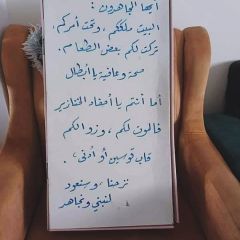 أيها المجاهدون :
البيت ملككم ، وتحت أمركم .
تركت لكم بعض الطعام .
صحة وعافية يا أبطال
أما أنتم يا أحفاد الخنازير
فالموت لكم ، وزوالكم
قاب قوسين أو أدنى .
نزحنا ، وسنعود
لنبني ونجاهد